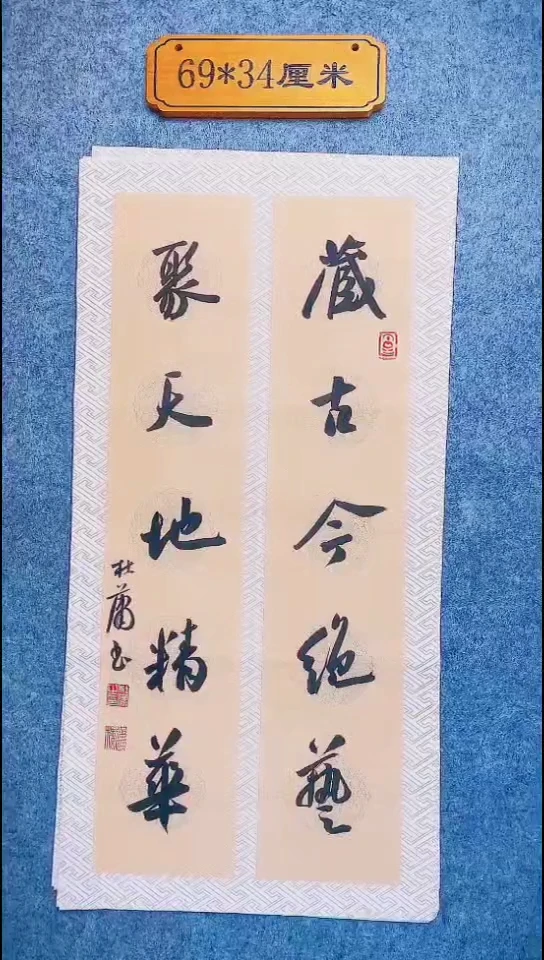 69*34厘米
藏古今绝藝
聚天地精華
杜蕭书